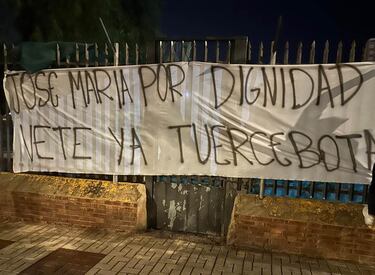 JOSE MARIA POR DIGNIDAD
VETE YA TUERCEBOTA